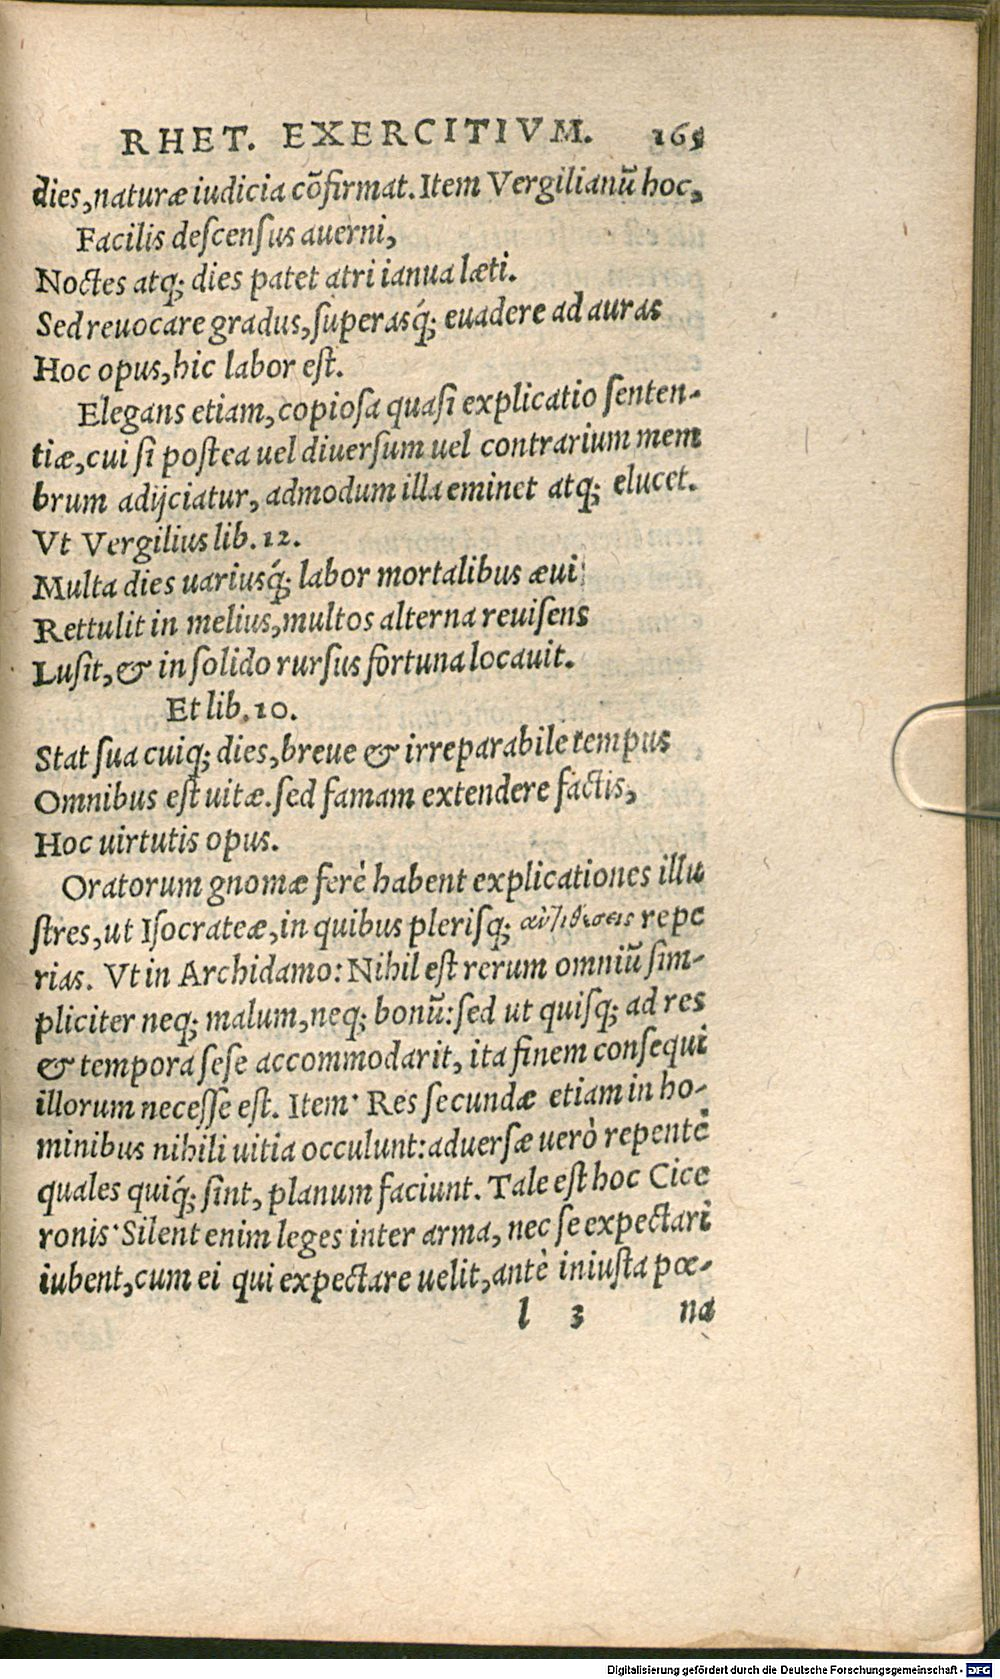 RHET. EXERCITIVM. 165
dies, naturæ iudicia cõfirmat. Item Vergilianũ hoc,
Facilis deſcenſus auerni,
Noctes atq; dies patet atri ianua læti.
Sed reuocare gradus, ſuperasq́; euadere ad auras
Hoc opus, hic labor eſt.
Elegans etiam, copioſa quaſi explicatio ſenten-
tiæ, cui ſi poſtea uel diuerſum uel contrarium mem
brum adijciatur, admodum illa eminet atq; elucet.
Vt Vergilius lib. 12.
Multa dies uariusq́; labor mortalibus æui
Rettulit in melius, multos alterna reuiſens
Luſit, & in ſolido rurſus fortuna locauit.
Et lib. 10.
Stat ſua cuiq; dies, breue & irreparabile tempus
Omnibus eſt uitæ. ſed famam extendere factis,
Hoc uirtutis opus.
Oratorum gnomæ ferè habent explicationes illu
ſtres, ut Iſocrateæ, in quibus pleriſq; repe
rias. Vt in Archidamo: Nihil eſt rerum omniũ ſim-
pliciter neq; malum, neq; bonũ: ſed ut quiſq; ad res
& tempora ſeſe accommodarit, ita finem conſequi
illorum neceſſe eſt. Item· Res ſecundæ etiam in ho-
minibus nihili uitia occulunt: aduerſæ uerò repentè
quales quiq́; ſint, planum faciunt. Tale eſt hoc Cice
ronis· Silent enim leges inter arma, nec ſe expectari
iubent, cum ei qui expectare uelit, antè iniuſta pœ-
l 3 na
Digitalisierung gefördert durch die Deutsche Forschungsgemeinschaft - DFG